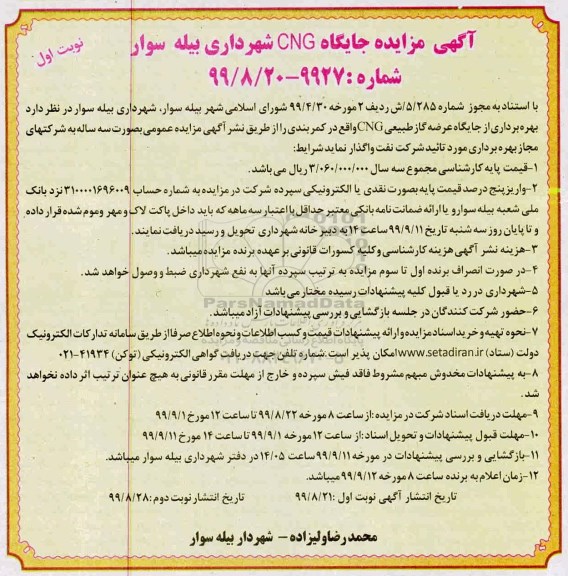 آگهی مزایده جایگاه CNG شهرداری بیله سوار
نوبت اول
شماره : ۹۹۲۷-۹۹/۸/۲۰
با استناد به مجوز شماره ۵/۲۸۵/ش ردیف ۲ مورخه ۹۹/۴/۳۰ شورای اسلامی شهر بیله سوار، شهرداری بیله سوار در نظر دارد
بهره برداری از جایگاه عرضه گاز طبیعی CNG واقع در کمربندی را از طریق نشر آگهی مزایده عمومی بصورت سه ساله به شرکتهای
مجاز بهره برداری مورد تائید شرکت نفت واگذار نماید شرایط:
۱-قیمت پایه کارشناسی مجموع سه سال ۳/۰۶۰/۰۰۰/۰۰۰ ریال می باشد.
۲-واریز پنج درصد قیمت پایه بصورت نقدی یا الکترونیکی سپرده شرکت در مزایده به شماره حساب ۳۱۰۰۰۰۱۶۹۶۰۰۹ نزد بانک
ملی شعبه بیله سوار و یا ارائه ضمانت نامه بانکی معتبر حداقل با اعتبار سه ماهه که باید داخل پاکت لاک و مهر و موم شده قرار داده
و تا پایان روز سه شنبه تاریخ ۹۹/۹/۱۱ ساعت ۱۴ به دبیر خانه شهرداری تحویل و رسید دریافت نمایند.
۳-هزینه نشر آگهی هزینه کارشناسی و کلیه کسورات قانونی بر عهده برنده مزایده میباشد.
۴-در صورت انصراف برنده اول تا سوم مزایده به ترتیب سپرده آنها به نفع شهرداری ضبط و وصول خواهد شد.
۵-شهرداری در رد یا قبول کلیه پیشنهادات رسیده مختار می باشد
۶-حضور شرکت کنندگان در جلسه بازگشایی و بررسی پیشنهادات آزاد میباشد.
۷-نحوه تهیه و خرید اسناد مزایده و ارائه پیشنهادات قیمت و کسب اطلاعات و نحوه اطلاع صرفا از طریق سامانه تدارکات الکترونیک
دولت (ستاد) www.setadiran.ir امکان پذیر است.شماره تلفن جهت دریافت گواهی الکترونیکی (توکن) ۴۱۹۳۴-۰۲۱
۸-به پیشنهادات مخدوش مبهم مشروط فاقد فیش سپرده و خارج از مهلت مقرر قانونی به هیچ عنوان ترتیب اثر داده نخواهد
شد.
۹-مهلت دریافت اسناد شرکت در مزایده :از ساعت ۸ مورخه ۹۹/۸/۲۲ تا ساعت ۱۲ مورخ ۹۹/۹/۱
۱۰-مهلت قبول پیشنهادات و تحویل اسناد :از ساعت ۱۲ مورخه ۹۹/۹/۱ تا ساعت ۱۴ مورخ ۹۹/۹/۱۱
۱۱-بازگشایی و بررسی پیشنهادات در مورخه ۹۹/۹/۱۱ ساعت ۱۴/۰۵ در دفتر شهرداری بیله سوار میباشد.
۱۲-زمان اعلام به برنده ساعت ۸ مورخه ۹۹/۹/۱۲ میباشد.
تاریخ انتشار آگهی نوبت اول :۹۹/۸/۲۱ تاریخ انتشار نوبت دوم :۹۹/۸/۲۸
محمدرضا ولیزاده - شهردار بیله سوار
ParsNamadData